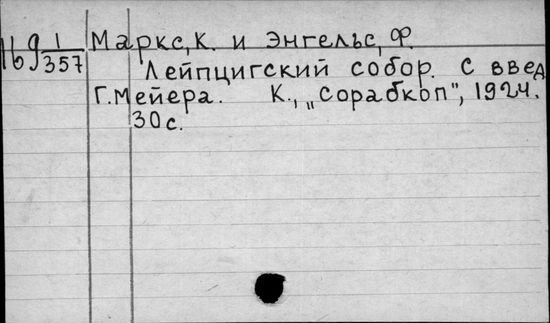 169 1/357
Маркс, К. и Энгельс, Ф.
Лейпцигский собор. С введ
Г. Мейера. К., „Сорабкоп", 1924.
30 с.